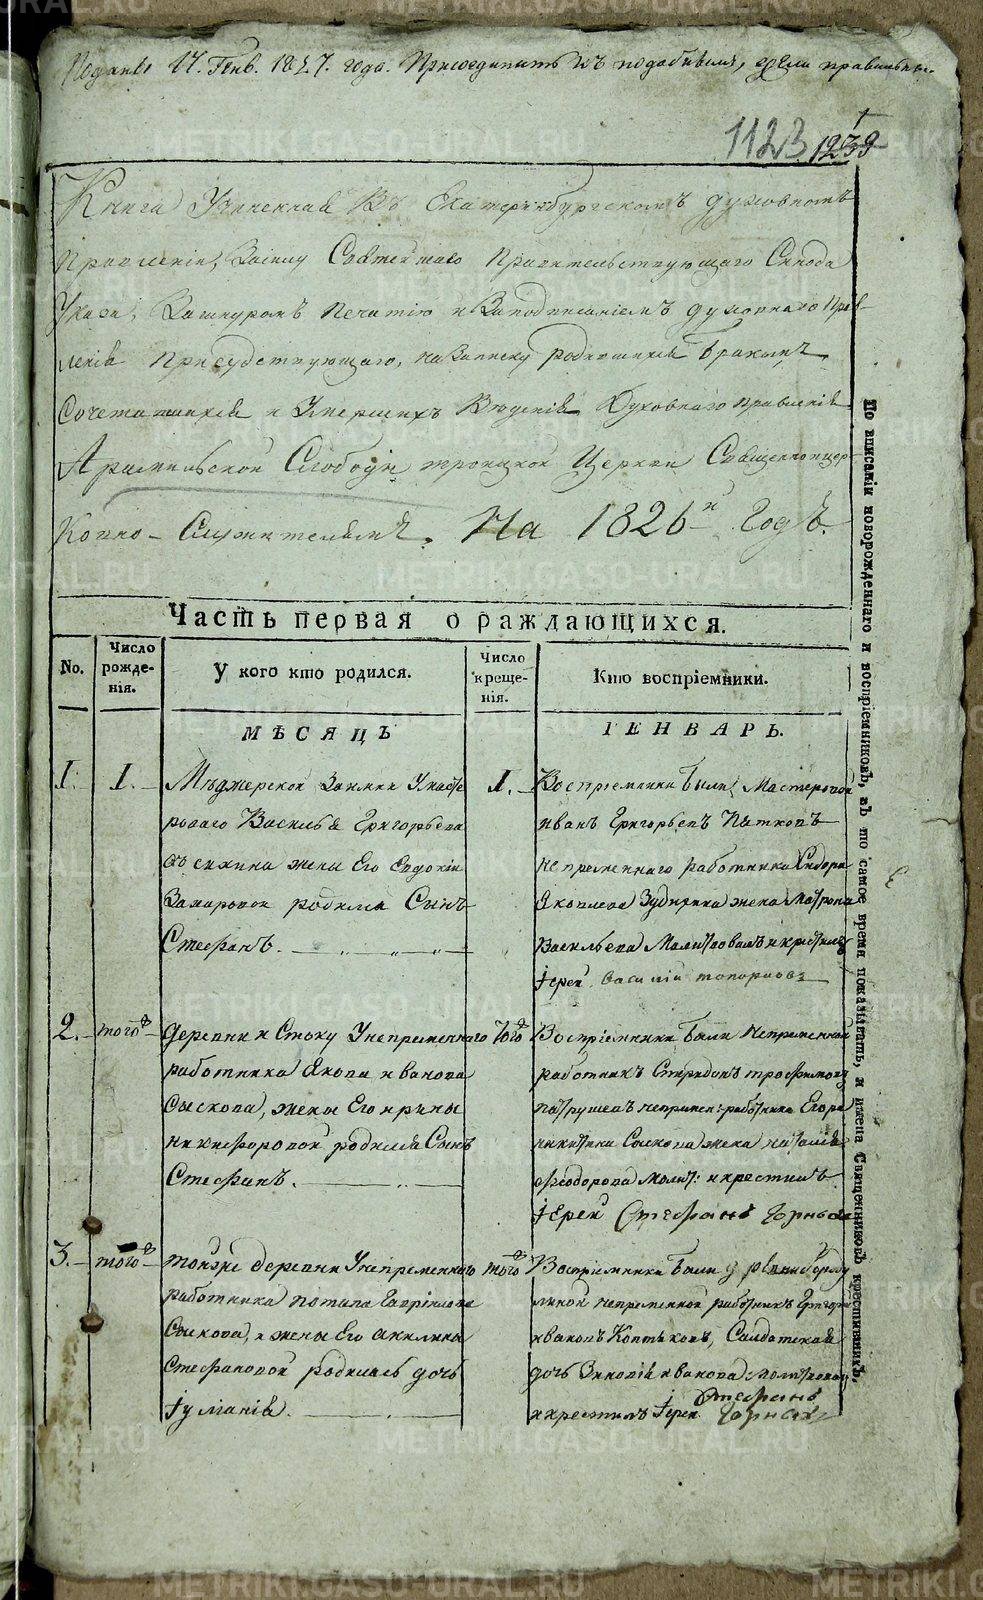 17. Генв. 1827. года. Присоединить къ подобнымъ,
1123 1239
Книга Учиненная Въ Екатеринбургскомъ духовномъ
Правленіи, Святейшаго Правительствующаго Синода
Указа, Зашнуромъ Печатію и Заподписаніемъ духовнаго Прав
ленія Присудствующаго, на Записку родившихся бракомъ
Сочетавшихся и Умершихъ Вѣденія Духовнаго правленія
Арамильской Слободы троицкой Церкви Священноцер-
ковно-Служителямъ. На 1826й Годъ.
Часть первая о раждающихся.
No.
Число рожде-нія.
У кого кто родился.
Число креще-нія.
Кто воспріемники.
МѢСЯЦЪ ГЕНВАРЬ.
1. 1.
Заимки Умасте
роваго Василья Григорьева
жена Его Евдокія
родила Сынъ
Стефанъ.
1.
Воспріемники были, Мастеровой
иванъ Григорьевъ Пятковъ
непременнаго работника Сидора
Яковлева Зубарева жена Матрона
Васильева Молитвовалъ и крестилъ
іерей Василій топорковъ
2. того
деревни Истоку Унепременнаго
работника Якова иванова
Сыскова, жены Его ирины
никифоровой родился Сынъ
Стефанъ.
того
Воспріемники были Непременной
работникъ Спиридонъ трофимовъ
патрушевъ непремен: работника Егора
никитина Сыскова жена наталья
феодорова Молит: и крестилъ
іерей Стефанъ Черныхъ
3. того
тойже деревни Унепременнаго
работника потапа Гавріилова
Сыскова, и жены Его акилины
Стефановой родилась дочь
іуліанія.
того
Воспріемники были
непременной работникъ Григорій
ивановъ Коптяковъ, Салдатская
дочь Зиновія иванова: молитвовалъ
и крестилъ іерей Стефанъ
Черныхъ
По вписаніи новорожденнаго и воспріемниковъ, въ то самое время показывать, и имена Священниковъ крестившихъ.